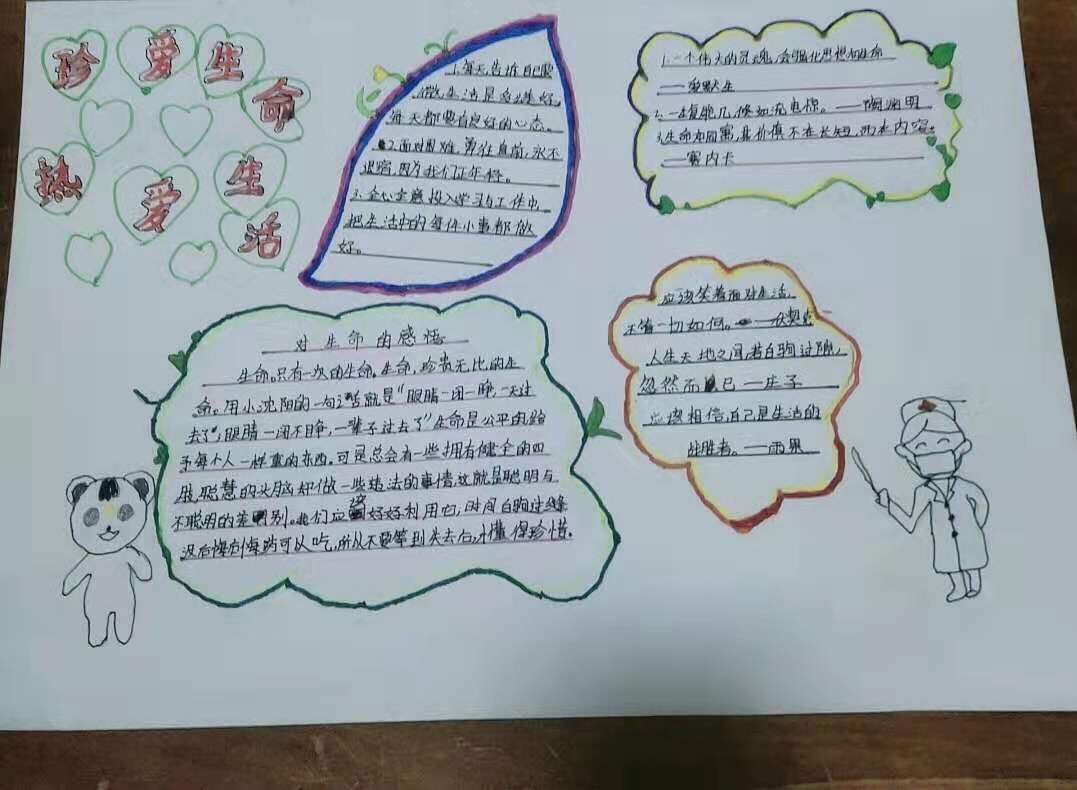 珍爱生命
热爱生活
1.每天告诉自己要
微生活是美好,
每天都要有良好的心态。
2.面对困难,勇往直前,永不
退缩,因为我们正年轻。
3.全心全意投入学习与工作中
把生活中的每件小事都做
好。
1.一个伟大的灵魂,会强化思想和生命
——爱默生
2.一生复能几,倏如流电惊。——陶渊明
3.生命如同寓言,其价值不在长短,而在内容。
——赛内卡
对生命的感悟
生命。只有一次的生命。生命,珍贵无比的生
命。用小沈阳的一句话就是“眼睛一闭一睁,一天过
去了,眼睛一闭不睁,一辈子过去了”生命是公平的给
予每个人一样重的东西。可是总会有一些拥有健全的四
肢,聪慧的头脑却做一些违法的事情,这就是聪明与
不聪明的差别。我们应该好好利用它,时间白驹过缝
没后悔药可以吃,所以不要等到失去后,才懂得珍惜。
应该笑着面对生活,
不管一切如何。——伏契克
人生天地之间,若白驹过隙,
忽然而已—庄子
应该相信,自己是生活的
战胜者。——雨果